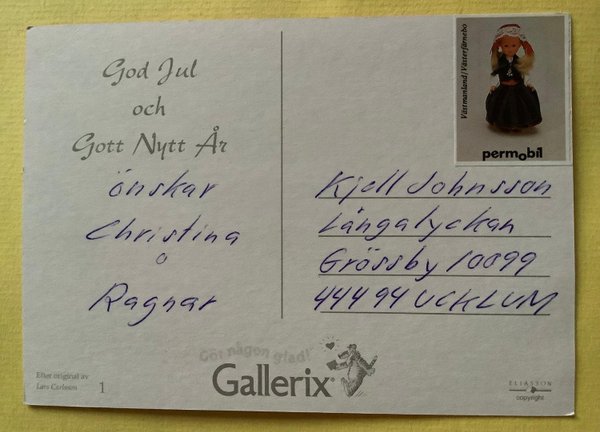 God Jul
och
Gott Nytt År
önskar
Christina
o
Ragnar
Västmanland/Västerfärnebo
permobil
Kjell Johnsson
Långalyckan
Grössby 10099
444 94 UCKLUM
Gör någon glad!
Gallerix®
Efter original av
Lars Carlsson
1
ELIASSON
copyright